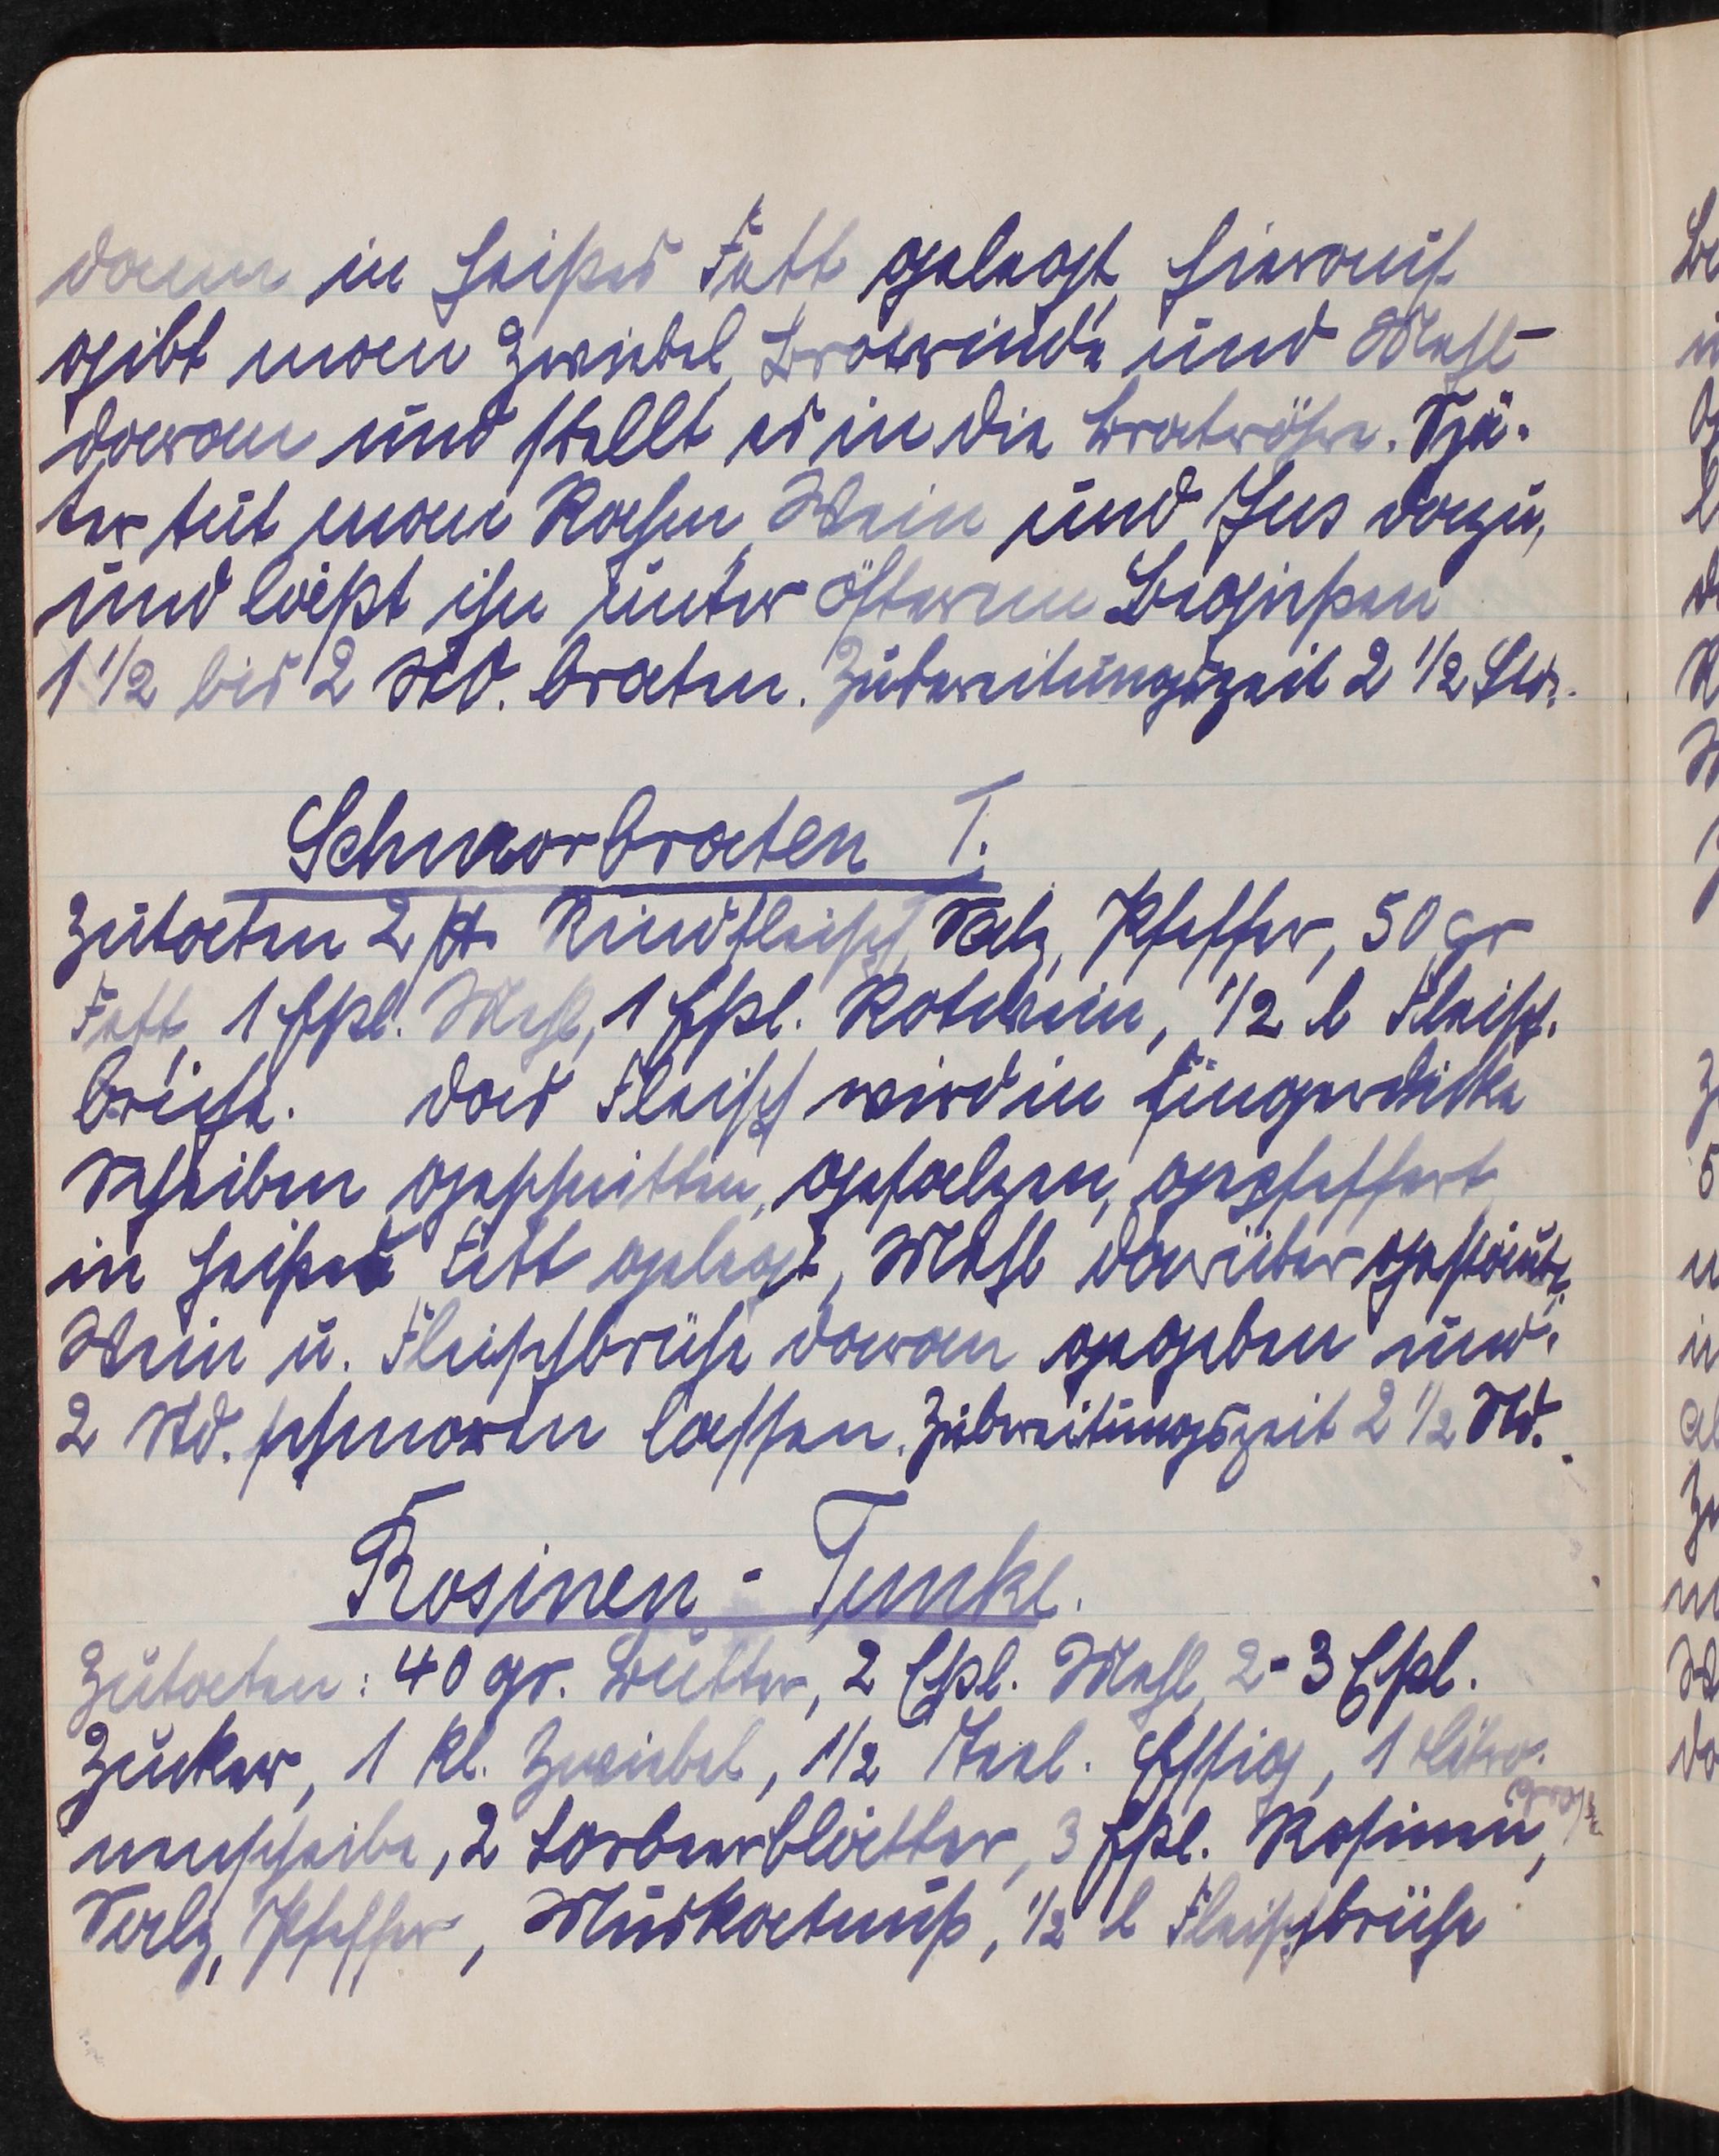 dann in heißes Fett gelegt, hierauf
gibt man Zwiebel, Brotrinde und Mehl
daran und stellt es in die Bratröhre. Spä-
ter tut man Rahm, Wein und Jus dazu,
und läßt ihn unter öfterem Begießen
1 1/2 bis 2 Std. braten. Zubereitungszeit 2 1/2 Std.
Schmorbraten I.
Zutaten 2 ℔ Rindfleisch, Salz, Pfeffer, 50 gr
Fett, 1 Eßl. Mehl, 1 Eßl. Rotwein, 1/2 l Fleisch-
brühe. Das Fleisch wird in fingerdicke
Scheiben geschnitten, gesalzen, gepfeffert
in heißes Fett gelegt, Mehl darüber gestäubt,
Wein u. Fleischbrühe daran gegeben und
2 Std. schmoren lassen. Zubereitungszeit 2 1/2 Std.
Rosinen-Tunke.
Zutaten: 40 gr. Butter, 2 Eßl. Mehl, 2-3 Eßl.
Zucker, 1 kl. Zwiebel, 1/2 Essl. Essig, 1 Zitro-
nenscheibe, 2 Lorbeerblätter, 3 Eßl. Rosinen, große
Salz, Pfeffer, Muskatnuß, 1/2 l Fleischbrühe